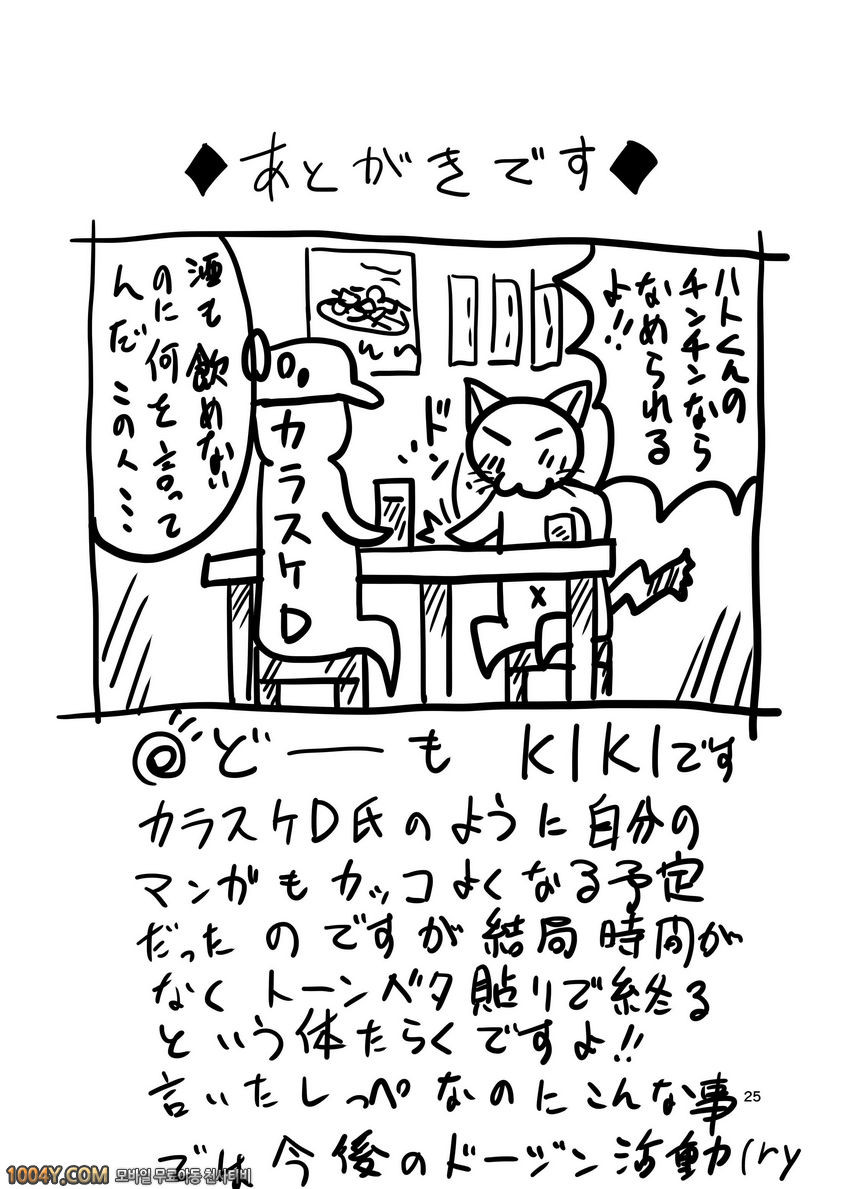 ◆あとがきです◆
ハトくんの
チンチンなら
なめられる
よ!!
ドン
酒も飲めない
のに何を言って
んだこの人…
カラスケD
◎どーも KIKIです
カラスケD氏のように自分の
マンガもカッコよくなる予定
だったのですが結局時間が
なくトーンベタ貼りで終る
という体たらくですよ!!
言いだしっぺなのにこんな事
では今後のドージン活動(ry
25
1004Y.COM 모바일 무료야동 천사티비